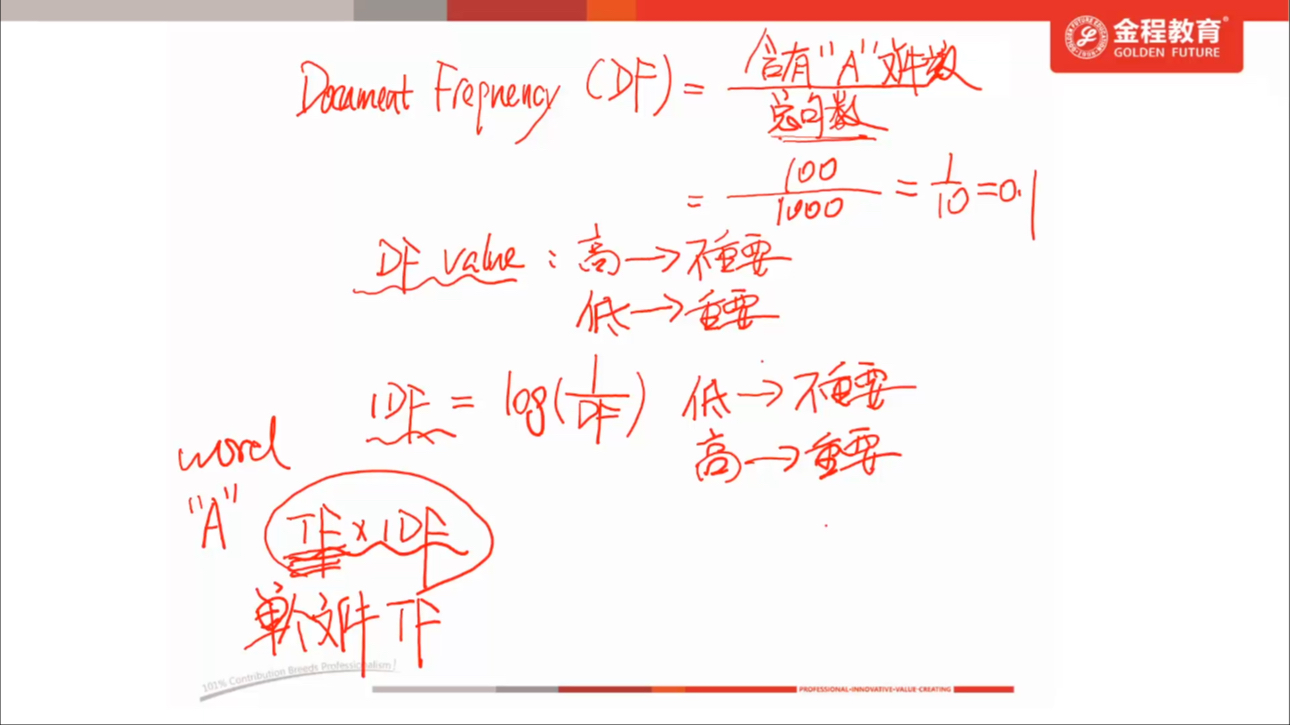 金程教育
GOLDEN FUTURE
Document Freqnency (DF) = 含有"A"文件数 / 总句数
= 100 / 1000 = 1 / 10 = 0.1
DF value : 高 → 不重要
低 → 重要
IDF = log(1 / DF) 低 → 不重要
高 → 重要
word
"A" TF × IDF
单个文件 TF
101% Contribution Breeds Professionalism!
PROFESSIONAL·INNOVATIVE·VALUE-CREATING